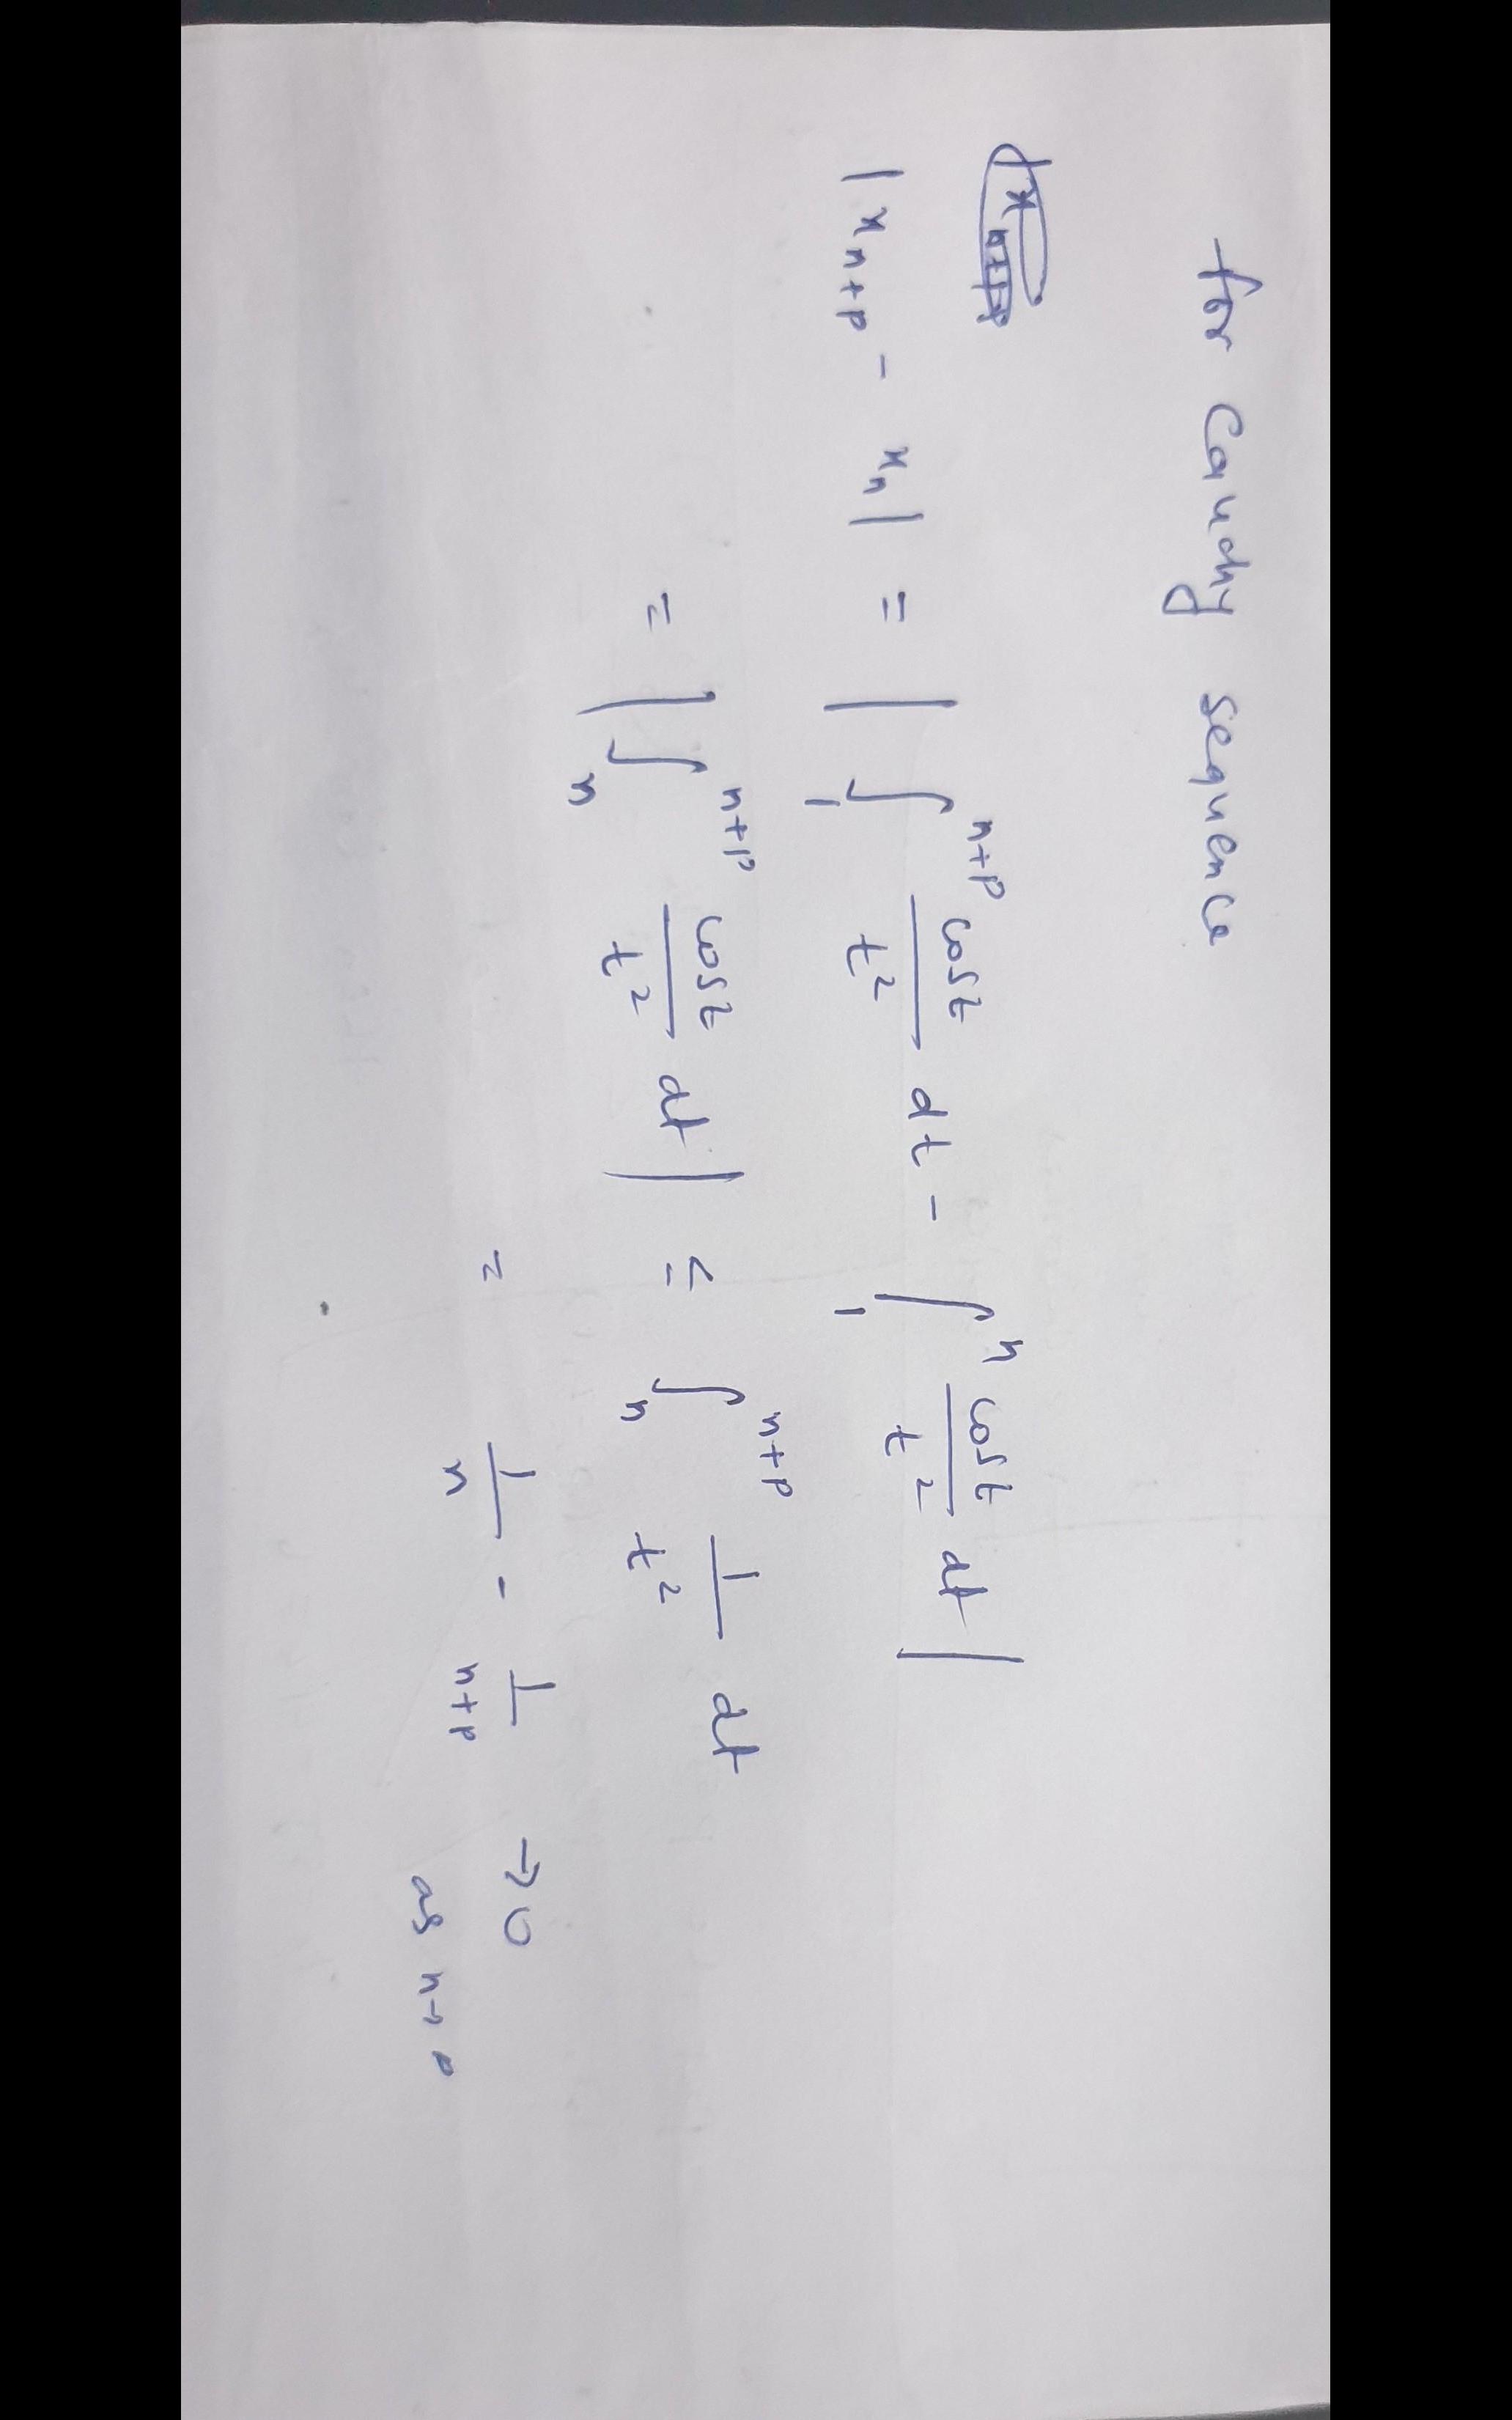 for Cauchy sequence
| x_{n+p} - x_n | = | ∫_1^{n+p} cost/t² dt - ∫_1^n cost/t² dt |
= | ∫_n^{n+p} cost/t² dt | ≤ ∫_n^{n+p} 1/t² dt
= 1/n - 1/n+p → 0
as n →